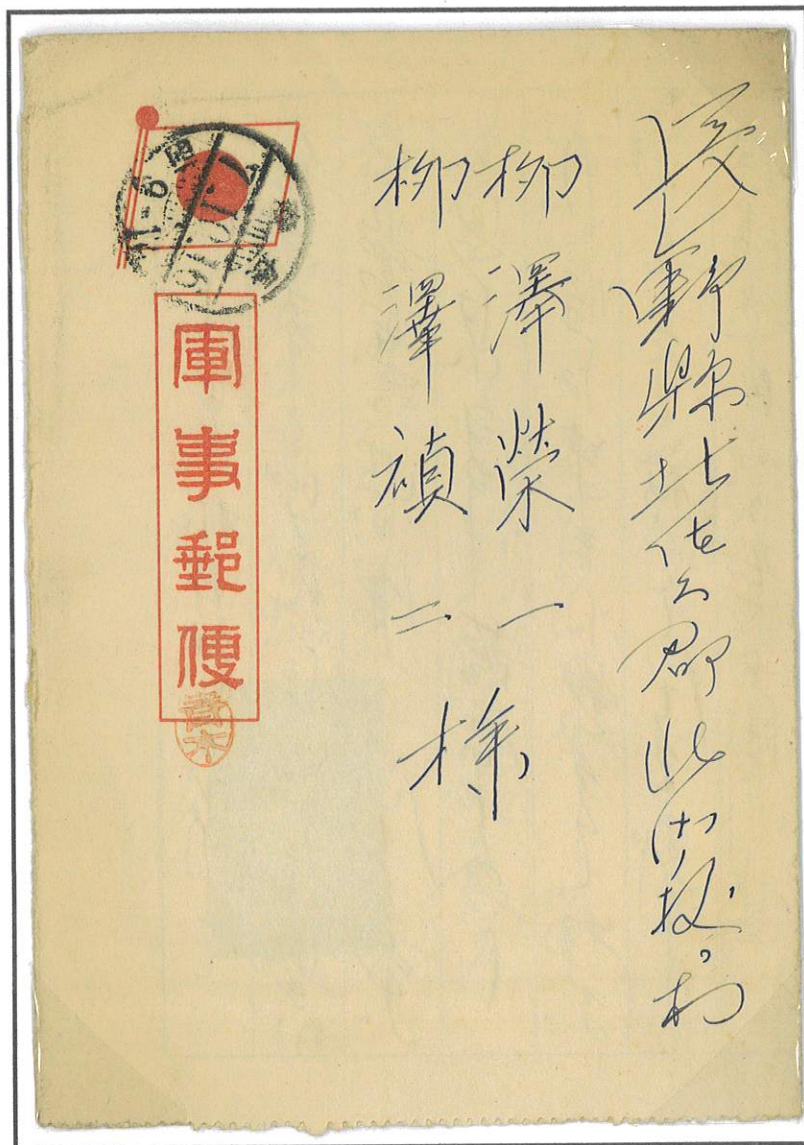 長野縣北佐久郡北御牧村
柳澤榮一
柳澤禎二様
軍事郵便